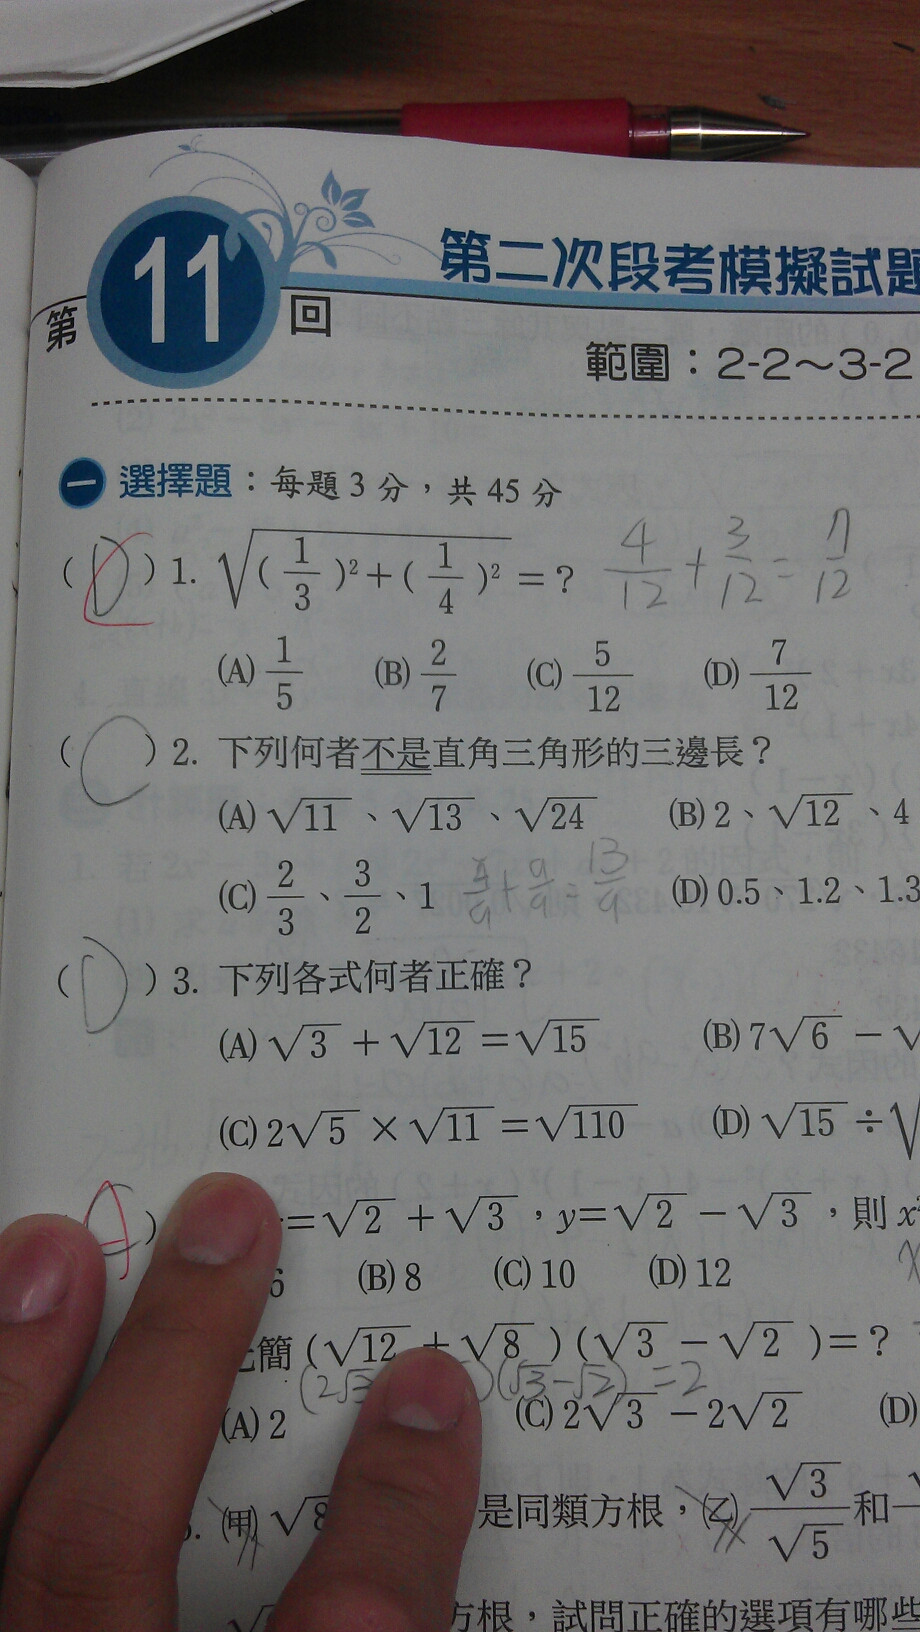 第 11 回
第二次段考模擬試題
範圍：2-2～3-2
一 選擇題：每題 3 分，共 45 分
( D ) 1. √((1/3)²+(1/4)²) =？ 4/12 + 3/12 = 7/12
(A) 1/5 (B) 2/7 (C) 5/12 (D) 7/12
( C ) 2. 下列何者不是直角三角形的三邊長？
(A) √11、√13、√24 (B) 2、√12、4
(C) 2/3、3/2、1 4/9 + 9/9 = 13/9 (D) 0.5、1.2、1.3
( D ) 3. 下列各式何者正確？
(A) √3 + √12 = √15 (B) 7√6 − √
(C) 2√5 × √11 = √110 (D) √15 ÷ √
( A ) = √2 + √3，y= √2 − √3，則 x²
6 (B) 8 (C) 10 (D) 12
簡 (√12 + √8)(√3 − √2)=？
(2√3 )(√3−√2) =2
(A) 2 (C) 2√3 − 2√2 (D)
(甲) √8 是同類方根，(乙) √3/√5 和
方根，試問正確的選項有哪些